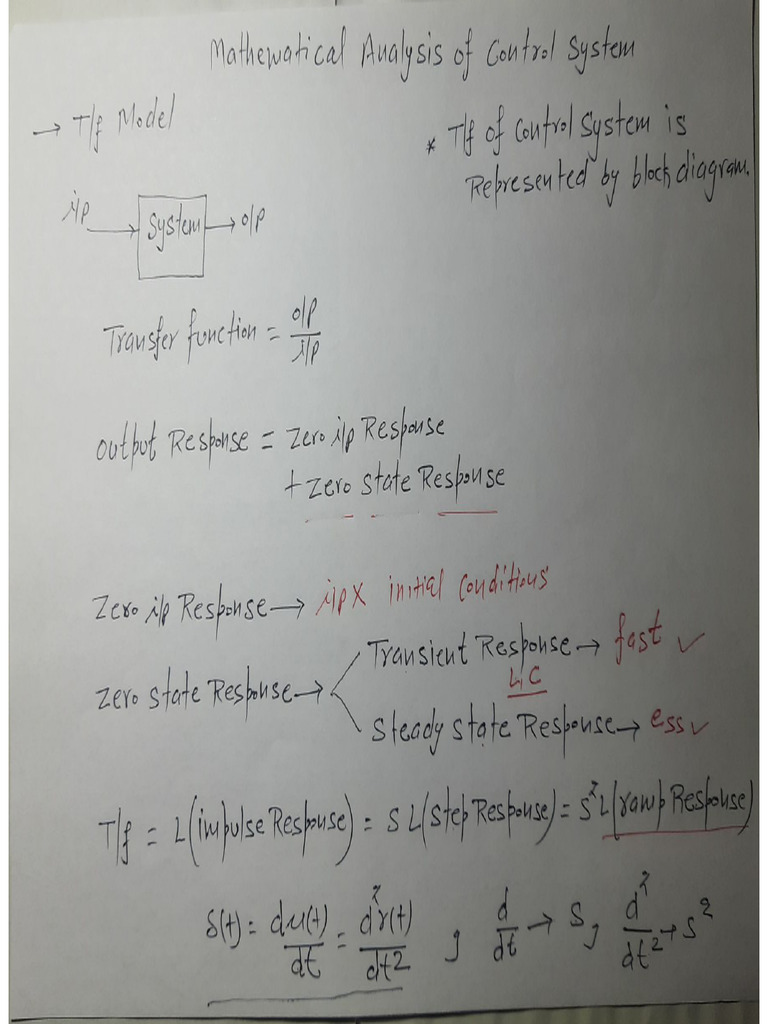 Mathematical Analysis of Control System
→ T/f Model
* T/f of Control System is
Represented by block diagram.
i/p → System → o/p
Transfer function = o/p / i/p
output Response = Zero i/p Response
+ Zero State Response
Zero i/p Response → i/p X initial Conditions
Zero State Response →
Transient Response → fast ✓
L, C
Steady State Response → ess ✓
T/f = L(impulse Response) = S L(Step Response) = S² L(ramp Response)
δ(t) = du(t)/dt = d²r(t)/dt² , d/dt → S, d²/dt² → s²